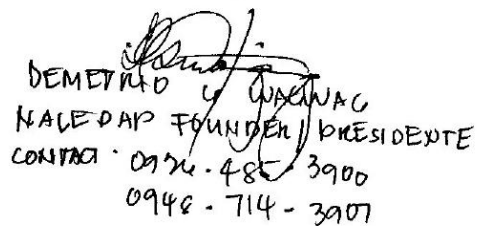 DEMETRIO
NACEDAP FOUNDER / PRESIDENTE
CONTACT: 0926-485-3900
0948-714-3907